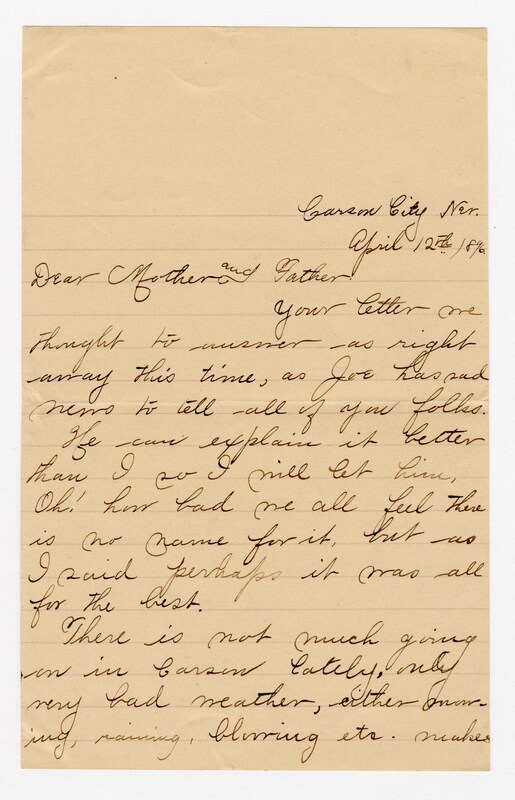 Carson City Nev.
April 12th 1896
Dear Mother and Father
Your letter we
thought to answer as right
away this time, as Joe has sad
news to tell all of you folks.
He can explain it better
than I so I will let him.
Oh! how bad we all feel there
is no name for it, but as
I said perhaps it was all
for the best.
There is not much going
on in Carson lately, only
very bad weather, either snow-
ing, raining, blowing etc. makes